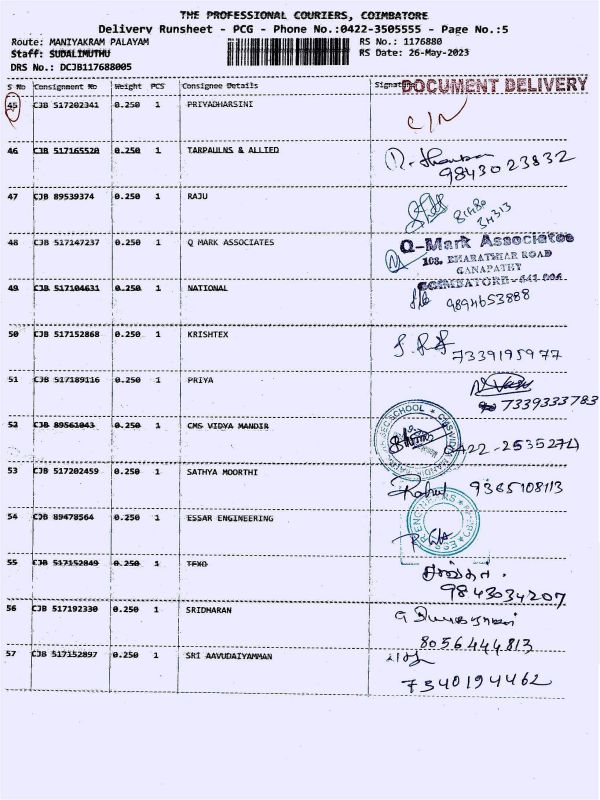 THE PROFESSIONAL COURIERS, COIMBATORE
Delivery Runsheet - PCG - Phone No.:0422-3505555 - Page No.:5
Route: MANIYAKRAM PALAYAM RS No.: 1176880
Staff: SUDALIMUTHU RS Date: 26-May-2023
DRS No.: DCJB117688005
S No Consignment No Weight PCS Consignee Details Signature DOCUMENT DELIVERY
45 CJB 517202341 0.250 1 PRIYADHARSINI
C/N
46 CJB 517165528 0.250 1 TARPAULNS & ALLIED
9843023832
47 CJB 89539374 0.250 1 RAJU
81480
34313
48 CJB 517147237 0.250 1 Q MARK ASSOCIATES
Q-Mark Associates
108, BHARATHIAR ROAD
GANAPATHY
COIMBATORE - 641 006
49 CJB 517104631 0.250 1 NATIONAL
9894653888
50 CJB 517152868 0.250 1 KRISHTEX
7339195977
51 CJB 517189116 0.250 1 PRIYA
7339333783
52 CJB 89561043 0.250 1 CMS VIDYA MANDIR
0422-2535274
53 CJB 517202459 0.250 1 SATHYA MOORTHI
Rahul 9365108113
54 CJB 89478564 0.250 1 ESSAR ENGINEERING
55 CJB 517152849 0.250 1 TEXO
9843034207
56 CJB 517192330 0.250 1 SRIDHARAN
8056444813
57 CJB 517152897 0.250 1 SRI AAVUDAIYAMMAN
7540194462